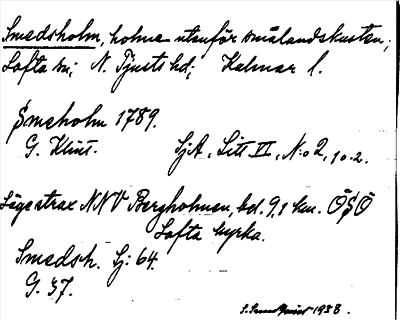 Smedsholm, holme utanför smålandskusten;
Lofta sn; N. Tjusts hd; Kalmar l.
Smeholm 1789.
G. Klint. SjA, Litt III, N:o 2, 10.2.
Läge strax NNV Bergholmen, bd. 9,1 km. ÖSÖ
Lofta kyrka.
Smedsh. Sj: 64.
G. 37.
1938.